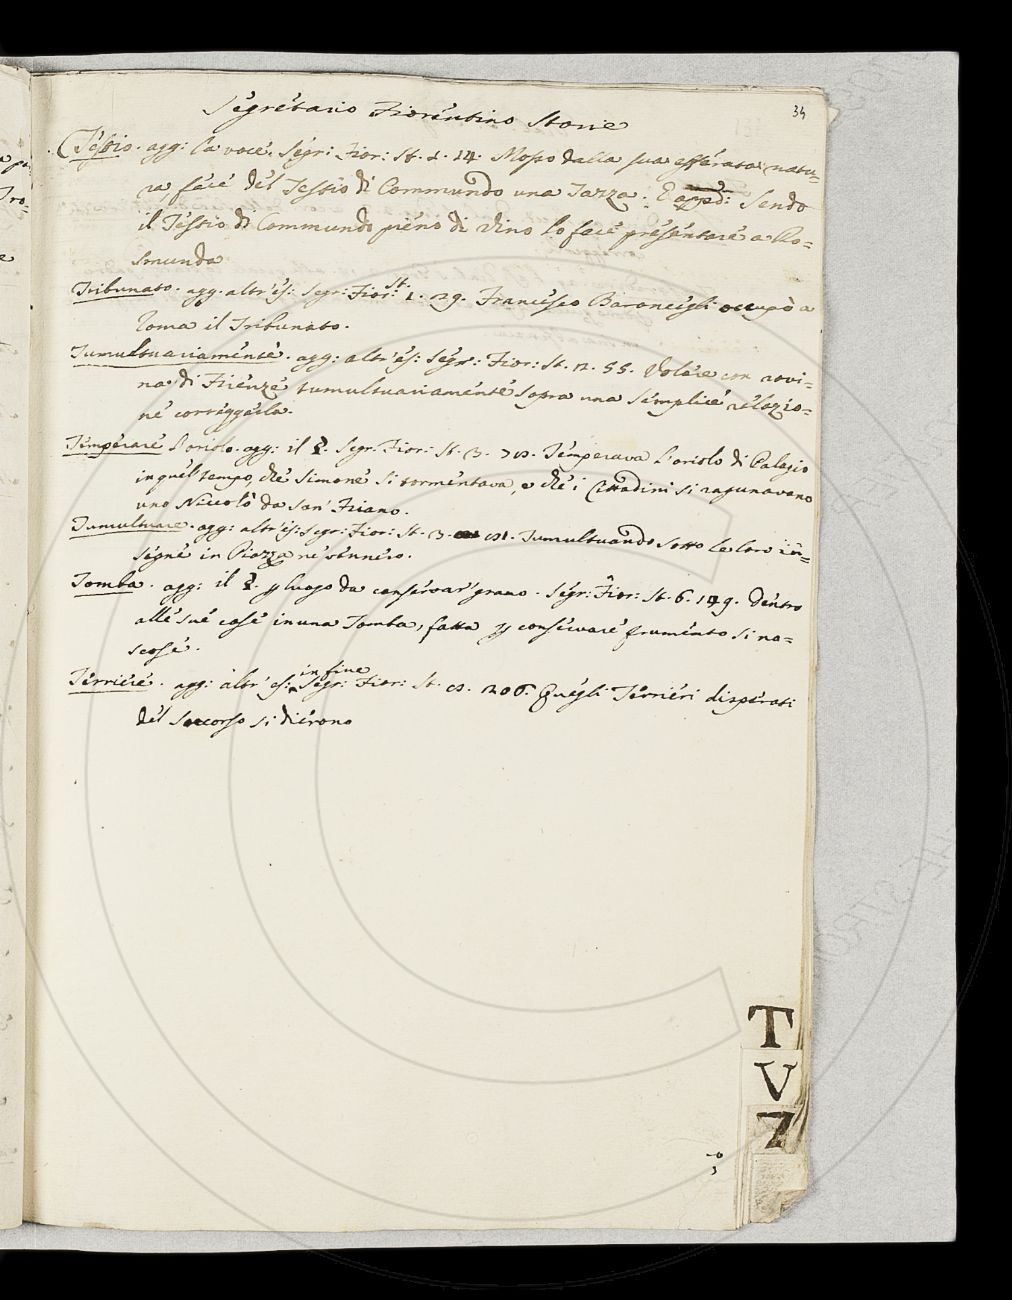 34
Segretario Fiorentino Storie
Teschio. agg: la voce. Segr: Fior: St. 1. 14. Mosso dalla sua efferata natu=
ra, fece del Teschio di Commundo una Tazza. E apped: Sendo
il Teschio di Commundo pieno di vino lo fece presentare a Ro=
smunda
Tribunato. agg. altr'es: Segr: Fior: St. 1. 29. Francesco Baroncegli occupò a
Roma il Tribunato.
Tumultuariamente. agg: altr'es: Segr: Fior: St. 2. 55. Volere con rovi=
na di Firenze tumultuariamente sopra una semplice relazio=
ne correggerla.
Temperare l'oriolo. agg: il §. Segr: Fior: St. 3. Temperava l'oriolo di Palagio
in quel tempo, che Simone si tormentava, e che i Cittadini si ragunavano
uno Niccolò da San Friano.
Tumultuare. agg: altr'es: Segr: Fior: St. 3. Tumultuando sotto le loro in=
segne in Piazza ne vennero.
Tomba. agg: il §. p luogo da conservar grano. Segr: Fior: St. 6. 149. dentro
alle sue case in una Tomba, fatta p conservare frumento si na=
scose.
Terriere. agg: altr'es: in fine Segr: Fior: St. 206. Quegli Terrieri disperati
del Soccorso si dierono
T
V
Z